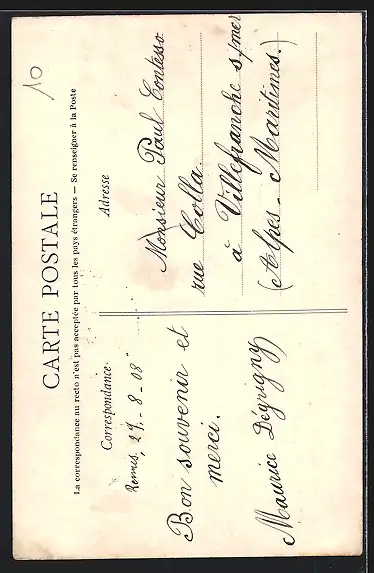 10
CARTE POSTALE
La correspondance au recto n'est pas acceptée par tous les pays étrangers — Se renseigner à la Poste
Correspondance
Rennes, 27-8-08
Bon souvenir et
merci.
Maurice Dégrigny
Adresse
Monsieur Paul Contesso
rue Colla.
à Villefranche s/mer
(Alpes-Maritimes.)